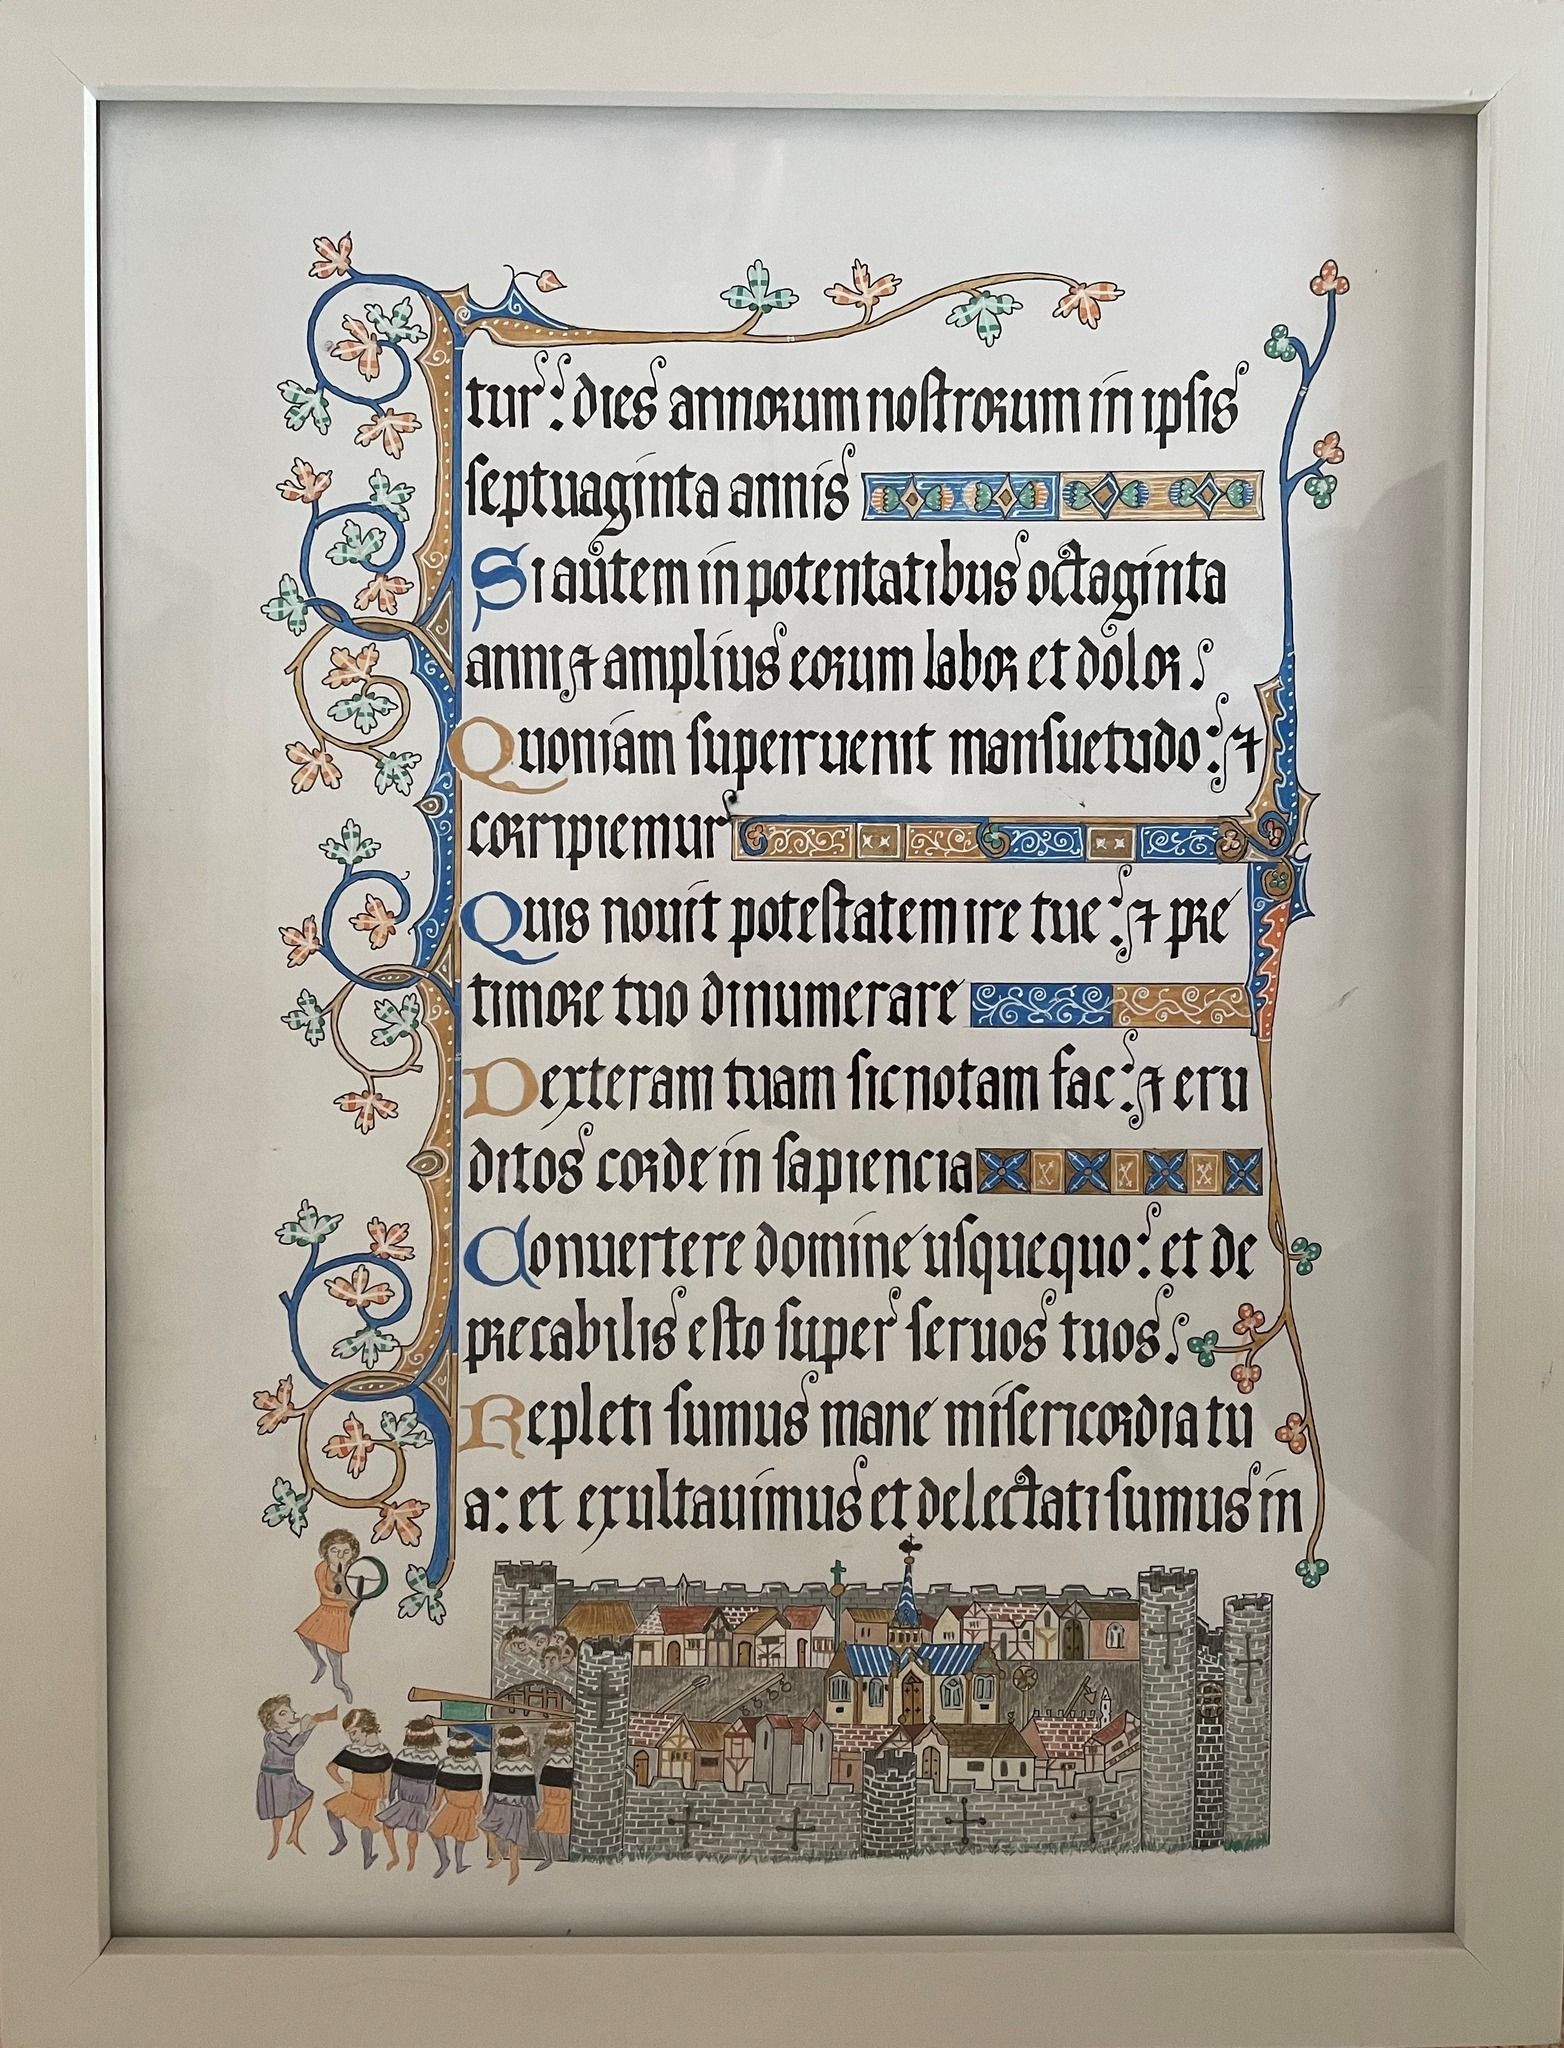 tur: dies annorum nostrorum in ipsis
septuaginta annis
Si autem in potentatibus octaginta
anni ⁊ amplius eorum labor et dolor.
Quoniam superruenit mansuetudo: ⁊
corripiemur
Quis nouit potestatem ire tue: ⁊ pre
timore tuo dinumerare
Dexteram tuam sic notam fac: ⁊ eru
ditos corde in sapiencia
Conuertere domine usquequo: et de
precabilis esto super seruos tuos.
Repleti sumus mane misericordia tu
a: et exultauimus et delectati sumus in